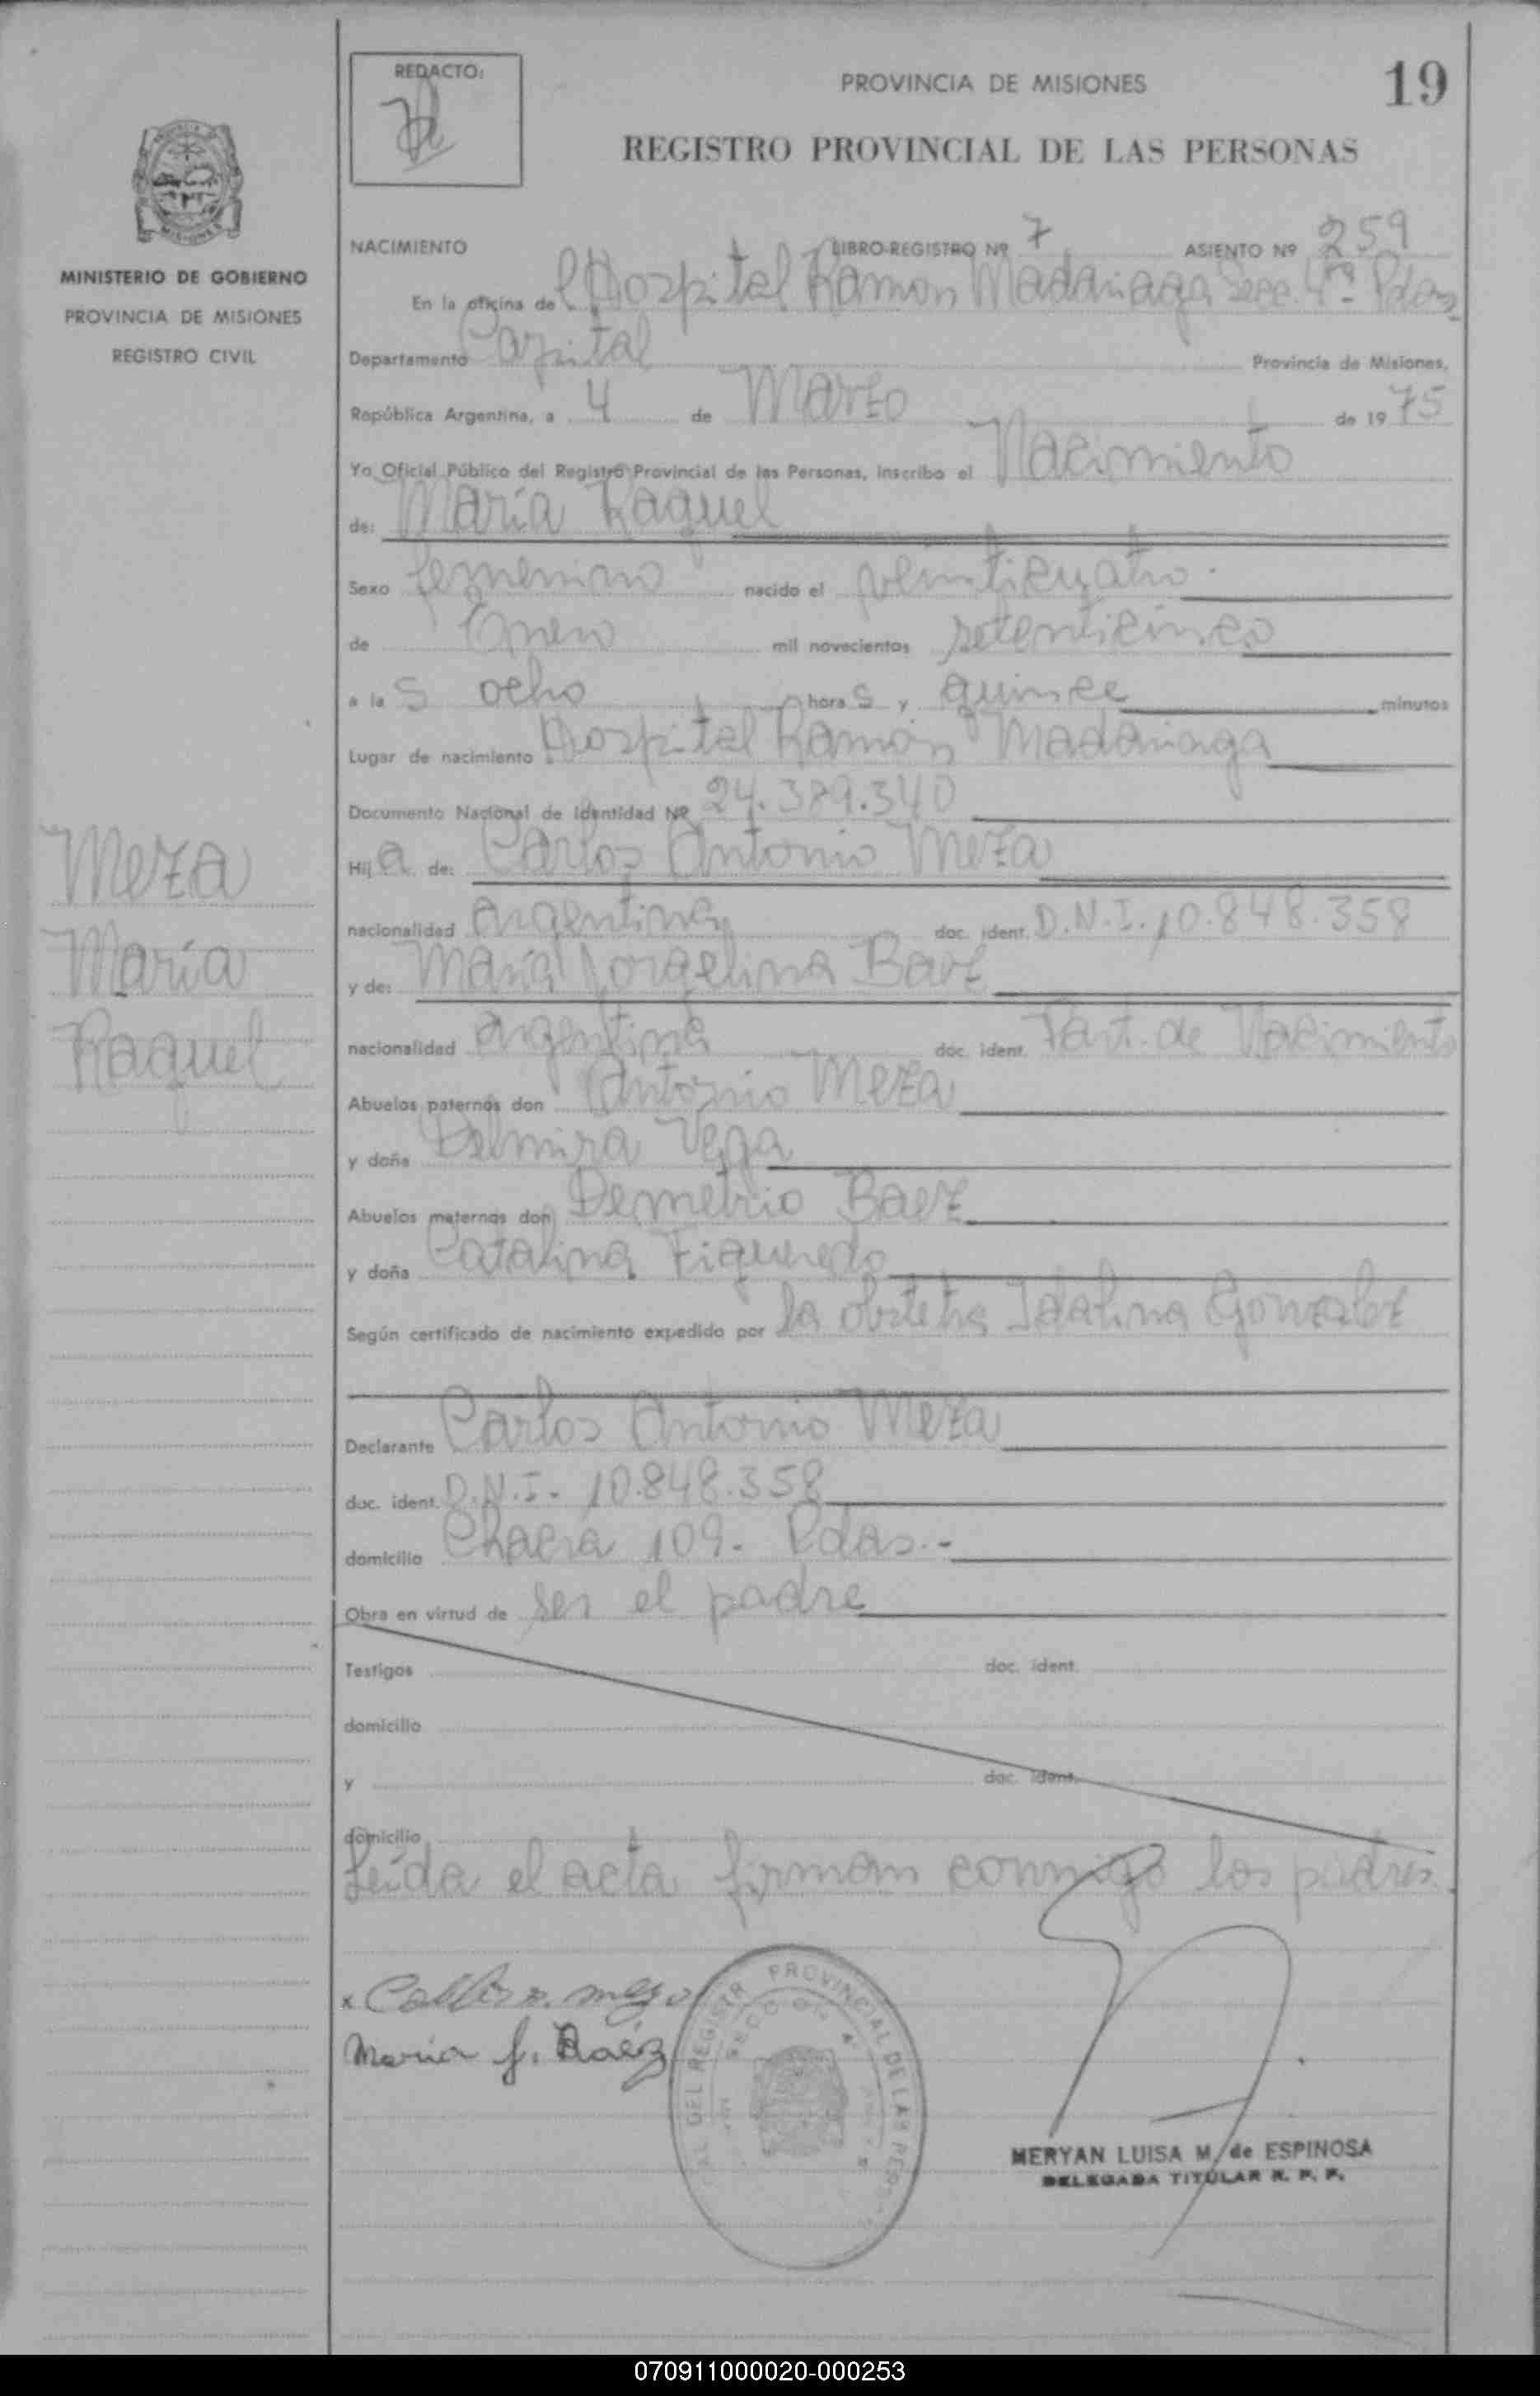 REDACTO:
PROVINCIA DE MISIONES
19
REGISTRO PROVINCIAL DE LAS PERSONAS
MINISTERIO DE GOBIERNO
PROVINCIA DE MISIONES
REGISTRO CIVIL
NACIMIENTO LIBRO-REGISTRO Nº 7 ASIENTO Nº 259
En la oficina del Hospital Ramon Madariaga Secc. 4ta. Pdas.
Departamento Capital Provincia de Misiones,
República Argentina, a 4 de Marzo de 19 75
Yo Oficial Público del Registro Provincial de las Personas, inscribo el Nacimiento
de: María Raquel
Sexo femenino nacido el veinticuatro.
de Enero mil novecientos setenticinco
a la s ocho hora s y quince minutos
Lugar de nacimiento Hospital Ramón Madariaga
Documento Nacional de Identidad Nº 24.389.340
Meza
María
Raquel
Hij a de: Carlos Antonio Meza
nacionalidad Argentina doc. ident. D.N.I. 10.848.358
y de: María Jorgelina Baez
nacionalidad Argentina doc. ident. Part. de Nacimiento
Abuelos paternos don Antonio Meza
y doña Delmira Vega
Abuelos maternos don Demetrio Baez
y doña Catalina Figueredo
Según certificado de nacimiento expedido por la obstetra Idalina Gonzalez
Declarante Carlos Antonio Meza
doc. ident. D.N.I. 10.848.358
domicilio Chacra 109. Pdas.-
Obra en virtud de ser el padre
Testigos doc. ident.
domicilio
y doc. ident.
domicilio
Leída el acta firman conmigo los padres.
x Carlos A. Meza
Maria J. Baéz
DEL REGISTR PROVINCIAL DE LAS PERS
SECCION 4
MERYAN LUISA M. de ESPINOSA
DELEGADA TITULAR R. P. P.
070911000020-000253